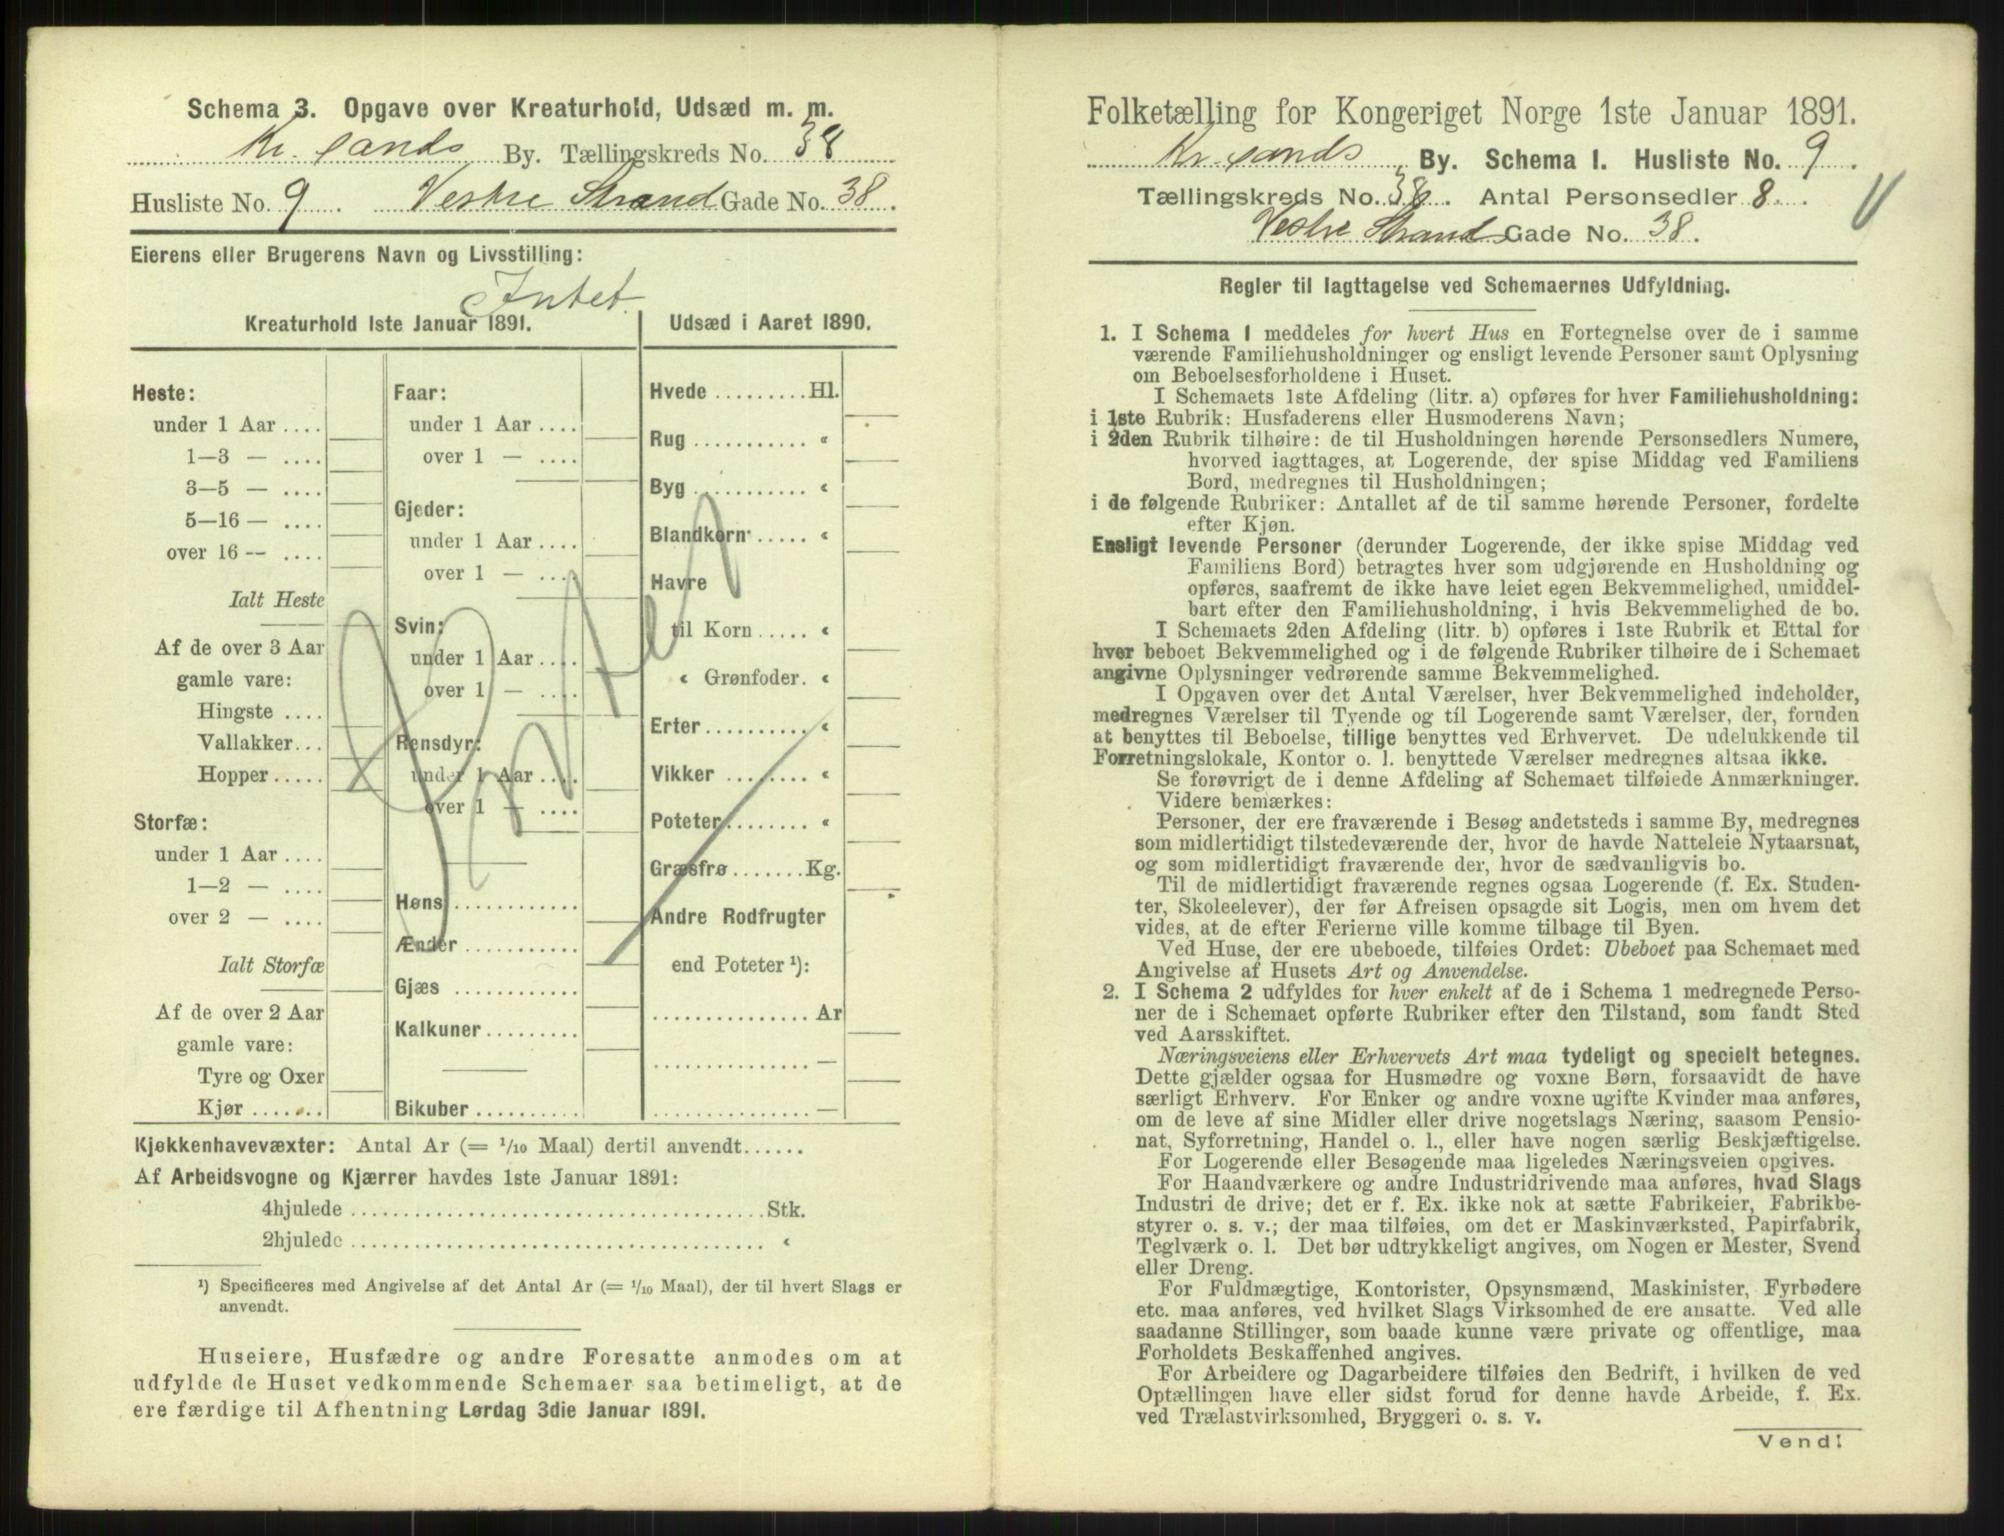 Schema 3. Opgave over Kreaturhold, Udsæd m. m.
Kr. sands By. Tællingskreds No. 38
Husliste No. 9 Vestre Strand Gade No. 38.
Eierens eller Brugerens Navn og Livsstilling:
Intet.
Kreaturhold 1ste Januar 1891.
Heste:
under 1 Aar ....
1—3 — ....
3—5 — ....
5—16 — ....
over 16 — ....
Ialt Heste
Af de over 3 Aar
gamle vare:
Hingste ....
Vallakker...
Hopper.....
Storfæ:
under 1 Aar ....
1—2 — ....
over 2 — ....
Ialt Storfæ
Af de over 2 Aar
gamle vare:
Tyre og Oxer
Kjør .......
Faar:
under 1 Aar ....
over 1 — ....
Gjeder:
under 1 Aar ....
over 1 — ....
Svin:
under 1 Aar ....
over 1 — ....
Rensdyr:
under 1 Aar ....
over 1 — ....
Høns ............
Ænder ...........
Gjæs ............
Kalkuner .........
Bikuber ..........
Intet
Udsæd i Aaret 1890.
Hvede .........Hl.
Rug ........... «
Byg ........... «
Blandkorn ..... «
Havre
til Korn ..... «
« Grønfoder. «
Erter .......... «
Vikker ........ «
Poteter ........ «
Græsfrø .......Kg.
Andre Rodfrugter
end Poteter ¹):
............... Ar
............... —
............... —
Kjøkkenhavevæxter: Antal Ar (= 1/10 Maal) dertil anvendt......
Af Arbeidsvogne og Kjærrer havdes 1ste Januar 1891:
4hjulede ........................................Stk.
2hjulede ........................................ «
¹) Specificeres med Angivelse af det Antal Ar (= 1/10 Maal), der til hvert Slags er
anvendt.
Huseiere, Husfædre og andre Foresatte anmodes om at
udfylde de Huset vedkommende Schemaer saa betimeligt, at de
ere færdige til Afhentning Lørdag 3die Januar 1891.
Folketælling for Kongeriget Norge 1ste Januar 1891.
Kr. sands By. Schema 1. Husliste No. 9.
Tællingskreds No. 38. Antal Personsedler 8.
Vestre Strand Gade No. 38.
Regler til Iagttagelse ved Schemaernes Udfyldning.
1. I Schema 1 meddeles for hvert Hus en Fortegnelse over de i samme
værende Familiehusholdninger og ensligt levende Personer samt Oplysning
om Beboelsesforholdene i Huset.
I Schemaets 1ste Afdeling (litr. a) opføres for hver Familiehusholdning:
i 1ste Rubrik: Husfaderens eller Husmoderens Navn;
i 2den Rubrik tilhøire: de til Husholdningen hørende Personsedlers Numere,
hvorved iagttages, at Logerende, der spise Middag ved Familiens
Bord, medregnes til Husholdningen;
i de følgende Rubriker: Antallet af de til samme hørende Personer, fordelte
efter Kjøn.
Ensligt levende Personer (derunder Logerende, der ikke spise Middag ved
Familiens Bord) betragtes hver som udgjørende en Husholdning og
opføres, saafremt de ikke have leiet egen Bekvemmelighed, umiddel-
bart efter den Familiehusholdning, i hvis Bekvemmelighed de bo.
I Schemaets 2den Afdeling (litr. b) opføres i 1ste Rubrik et Ettal for
hver beboet Bekvemmelighed og i de følgende Rubriker tilhøire de i Schemaet
angivne Oplysninger vedrørende samme Bekvemmelighed.
I Opgaven over det Antal Værelser, hver Bekvemmelighed indeholder,
medregnes Værelser til Tyende og til Logerende samt Værelser, der, foruden
at benyttes til Beboelse, tillige benyttes ved Erhvervet. De udelukkende til
Forretningslokale, Kontor o. l. benyttede Værelser medregnes altsaa ikke.
Se forøvrigt de i denne Afdeling af Schemaet tilføiede Anmærkninger.
Videre bemærkes:
Personer, der ere fraværende i Besøg andetsteds i samme By, medregnes
som midlertidigt tilstedeværende der, hvor de havde Natteleie Nytaarsnat,
og som midlertidigt fraværende der, hvor de sædvanligvis bo.
Til de midlertidigt fraværende regnes ogsaa Logerende (f. Ex. Studen-
ter, Skoleelever), der før Afreisen opsagde sit Logis, men om hvem det
vides, at de efter Ferierne ville komme tilbage til Byen.
Ved Huse, der ere ubeboede, tilføies Ordet: Ubeboet paa Schemaet med
Angivelse af Husets Art og Anvendelse.
2. I Schema 2 udfyldes for hver enkelt af de i Schema 1 medregnede Perso-
ner de i Schemaet opførte Rubriker efter den Tilstand, som fandt Sted
ved Aarsskiftet.
Næringsveiens eller Erhvervets Art maa tydeligt og specielt betegnes.
Dette gjælder ogsaa for Husmødre og voxne Børn, forsaavidt de have
særligt Erhverv. For Enker og andre voxne ugifte Kvinder maa anføres,
om de leve af sine Midler eller drive nogetslags Næring, saasom Pensio-
nat, Syforretning, Handel o. l., eller have nogen særlig Beskjæftigelse.
For Logerende eller Besøgende maa ligeledes Næringsveien opgives.
For Haandværkere og andre Industridrivende maa anføres, hvad Slags
Industri de drive; det er f. Ex. ikke nok at sætte Fabrikeier, Fabrikbe-
styrer o. s. v.; der maa tilføies, om det er Maskinværksted, Papirfabrik,
Teglværk o. l. Det bør udtrykkeligt angives, om Nogen er Mester, Svend
eller Dreng.
For Fuldmægtige, Kontorister, Opsynsmænd, Maskinister, Fyrbødere
etc. maa anføres, ved hvilket Slags Virksomhed de ere ansatte. Ved alle
saadanne Stillinger, som baade kunne være private og offentlige, maa
Forholdets Beskaffenhed angives.
For Arbeidere og Dagarbeidere tilføies den Bedrift, i hvilken de ved
Optællingen have eller sidst forud for denne havde Arbeide, f. Ex.
ved Trælastvirksomhed, Bryggeri o. s. v.
Vend!